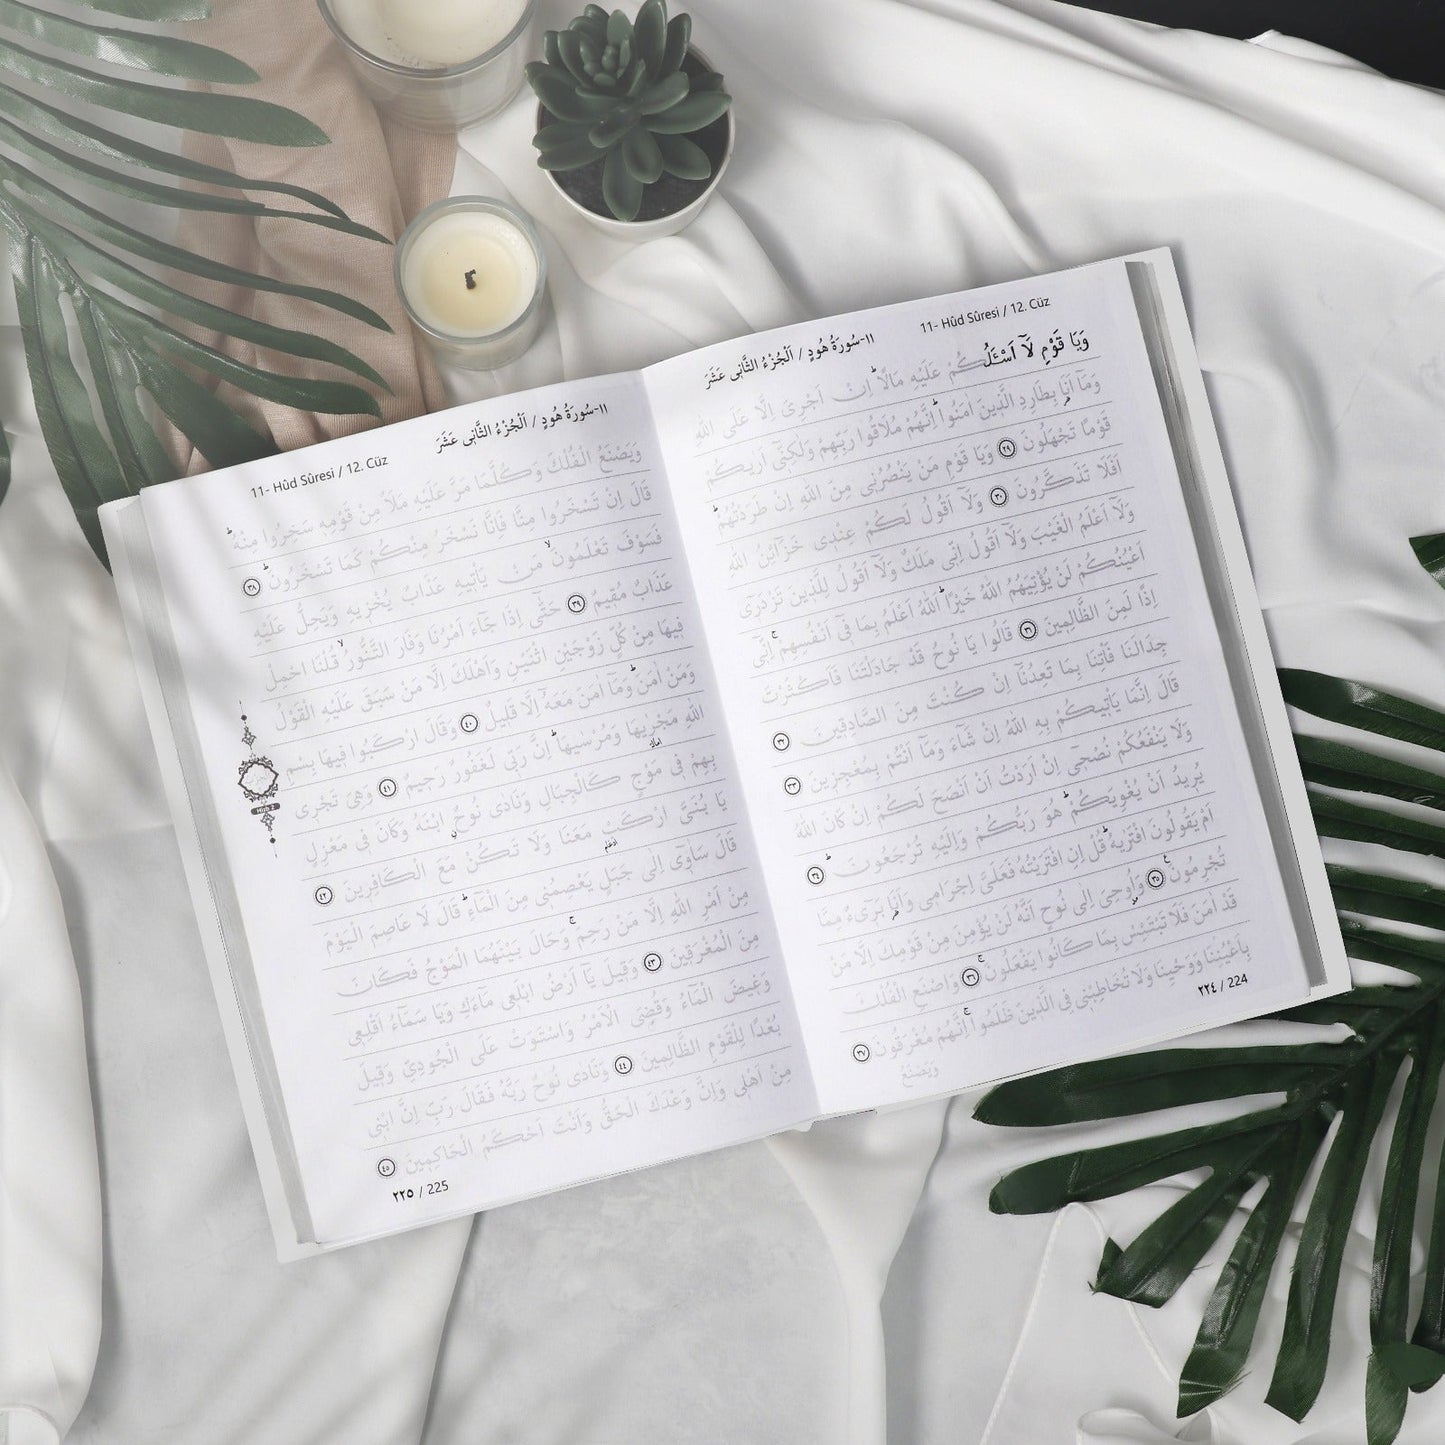 11- Hûd Sûresi / 12. Cüz
١١-سُورَةُ هُودٍ / اَلْجُزْءُ الثَّانِى عَشَرَ
وَيَا قَوْمِ لَآ اَسْـَٔلُكُمْ عَلَيْهِ مَالًاۜ اِنْ اَجْرِىَ اِلَّا عَلَى اللّٰهِ
وَمَآ اَنَا۬ بِطَارِدِ الَّذِينَ اٰمَنُواۜ اِنَّهُمْ مُلَاقُوا رَبِّهِمْ وَلٰكِنِّىٓ اَرٰيكُمْ
قَوْمًا تَجْهَلُونَ ﴿٢٩﴾ وَيَا قَوْمِ مَنْ يَنْصُرُنِى مِنَ اللّٰهِ اِنْ طَرَدْتُهُمْۜ
اَفَلَا تَذَكَّرُونَ ﴿٣٠﴾ وَلَآ اَقُولُ لَكُمْ عِنْدِى خَزَآئِنُ اللّٰهِ
وَلَآ اَعْلَمُ الْغَيْبَ وَلَآ اَقُولُ اِنِّى مَلَكٌ وَلَآ اَقُولُ لِلَّذِينَ تَزْدَرِىٓ
اَعْيُنُكُمْ لَنْ يُؤْتِيَهُمُ اللّٰهُ خَيْرًاۜ اَللّٰهُ اَعْلَمُ بِمَا فِىٓ اَنْفُسِهِمْۚ اِنِّىٓ
اِذًا لَمِنَ الظَّالِمِينَ ﴿٣١﴾ قَالُوا يَا نُوحُ قَدْ جَادَلْتَنَا فَاَكْثَرْتَ
جِدَالَنَا فَأْتِنَا بِمَا تَعِدُنَآ اِنْ كُنْتَ مِنَ الصَّادِقِينَ ﴿٣٢﴾
قَالَ اِنَّمَا يَأْتِيكُمْ بِهِ اللّٰهُ اِنْ شَآءَ وَمَآ اَنْتُمْ بِمُعْجِزِينَ ﴿٣٣﴾
وَلَا يَنْفَعُكُمْ نُصْحِىٓ اِنْ اَرَدْتُ اَنْ اَنْصَحَ لَكُمْ اِنْ كَانَ اللّٰهُ
يُرِيدُ اَنْ يُغْوِيَكُمْۜ هُوَ رَبُّكُمْ وَاِلَيْهِ تُرْجَعُونَۜ ﴿٣٤﴾
اَمْ يَقُولُونَ افْتَرٰيهُۜ قُلْ اِنِ افْتَرَيْتُهُ فَعَلَىَّ اِجْرَامِى وَاَنَا۬ بَرِىٓءٌ مِمَّا
تُجْرِمُونَۚ ﴿٣٥﴾ وَاُوحِىَ اِلٰى نُوحٍ اَنَّهُ لَنْ يُؤْمِنَ مِنْ قَوْمِكَ اِلَّا مَنْ
قَدْ اٰمَنَ فَلَا تَبْتَئِسْ بِمَا كَانُوا يَفْعَلُونَۚ ﴿٣٦﴾ وَاصْنَعِ الْفُلْكَ
بِاَعْيُنِنَا وَوَحْيِنَا وَلَا تُخَاطِبْنِى فِى الَّذِينَ ظَلَمُواۚ اِنَّهُمْ مُغْرَقُونَ ﴿٣٧﴾
وَيَصْنَعُ
٢٢٤ / 224
١١-سُورَةُ هُودٍ / اَلْجُزْءُ الثَّانِى عَشَرَ
11- Hûd Sûresi / 12. Cüz
وَيَصْنَعُ الْفُلْكَ وَكُلَّمَا مَرَّ عَلَيْهِ مَلَاٌ مِنْ قَوْمِهِ سَخِرُوا مِنْهُۜ
قَالَ اِنْ تَسْخَرُوا مِنَّا فَاِنَّا نَسْخَرُ مِنْكُمْ كَمَا تَسْخَرُونَۜ ﴿٣٨﴾
فَسَوْفَ تَعْلَمُونَۙ مَنْ يَأْتِيهِ عَذَابٌ يُخْزِيهِ وَيَحِلُّ عَلَيْهِ
عَذَابٌ مُقِيمٌ ﴿٣٩﴾ حَتّٰىٓ اِذَا جَآءَ اَمْرُنَا وَفَارَ التَّنُّورُۙ قُلْنَا احْمِلْ
فِيهَا مِنْ كُلٍّ زَوْجَيْنِ اثْنَيْنِ وَاَهْلَكَ اِلَّا مَنْ سَبَقَ عَلَيْهِ الْقَوْلُ
وَمَنْ اٰمَنَۜ وَمَآ اٰمَنَ مَعَهُٓ اِلَّا قَلِيلٌ ﴿٤٠﴾ وَقَالَ ارْكَبُوا فِيهَا بِسْمِ
اللّٰهِ مَجْرٰۭيهَا وَمُرْسٰيهَاۜ اِنَّ رَبِّى لَغَفُورٌ رَحِيمٌ ﴿٤١﴾ وَهِىَ تَجْرِى
بِهِمْ فِى مَوْجٍ كَالْجِبَالِ وَنَادٰى نُوحٌ ابْنَهُ وَكَانَ فِى مَعْزِلٍ
يَا بُنَىَّ ارْكَبْ مَعَنَا وَلَا تَكُنْ مَعَ الْكَافِرِينَ ﴿٤٢﴾
قَالَ سَاٰوِىٓ اِلٰى جَبَلٍ يَعْصِمُنِى مِنَ الْمَآءِۜ قَالَ لَا عَاصِمَ الْيَوْمَ
مِنْ اَمْرِ اللّٰهِ اِلَّا مَنْ رَحِمَۚ وَحَالَ بَيْنَهُمَا الْمَوْجُ فَكَانَ
مِنَ الْمُغْرَقِينَ ﴿٤٣﴾ وَقِيلَ يَآ اَرْضُ ابْلَعِى مَآءَكِ وَيَا سَمَآءُ اَقْلِعِى
وَغِيضَ الْمَآءُ وَقُضِىَ الْاَمْرُ وَاسْتَوَتْ عَلَى الْجُودِىِّ وَقِيلَ
بُعْدًا لِلْقَوْمِ الظَّالِمِينَ ﴿٤٤﴾ وَنَادٰى نُوحٌ رَبَّهُ فَقَالَ رَبِّ اِنَّ ابْنِى
مِنْ اَهْلِى وَاِنَّ وَعْدَكَ الْحَقُّ وَاَنْتَ اَحْكَمُ الْحَاكِمِينَ ﴿٤٥﴾
٢٢٥ / 225